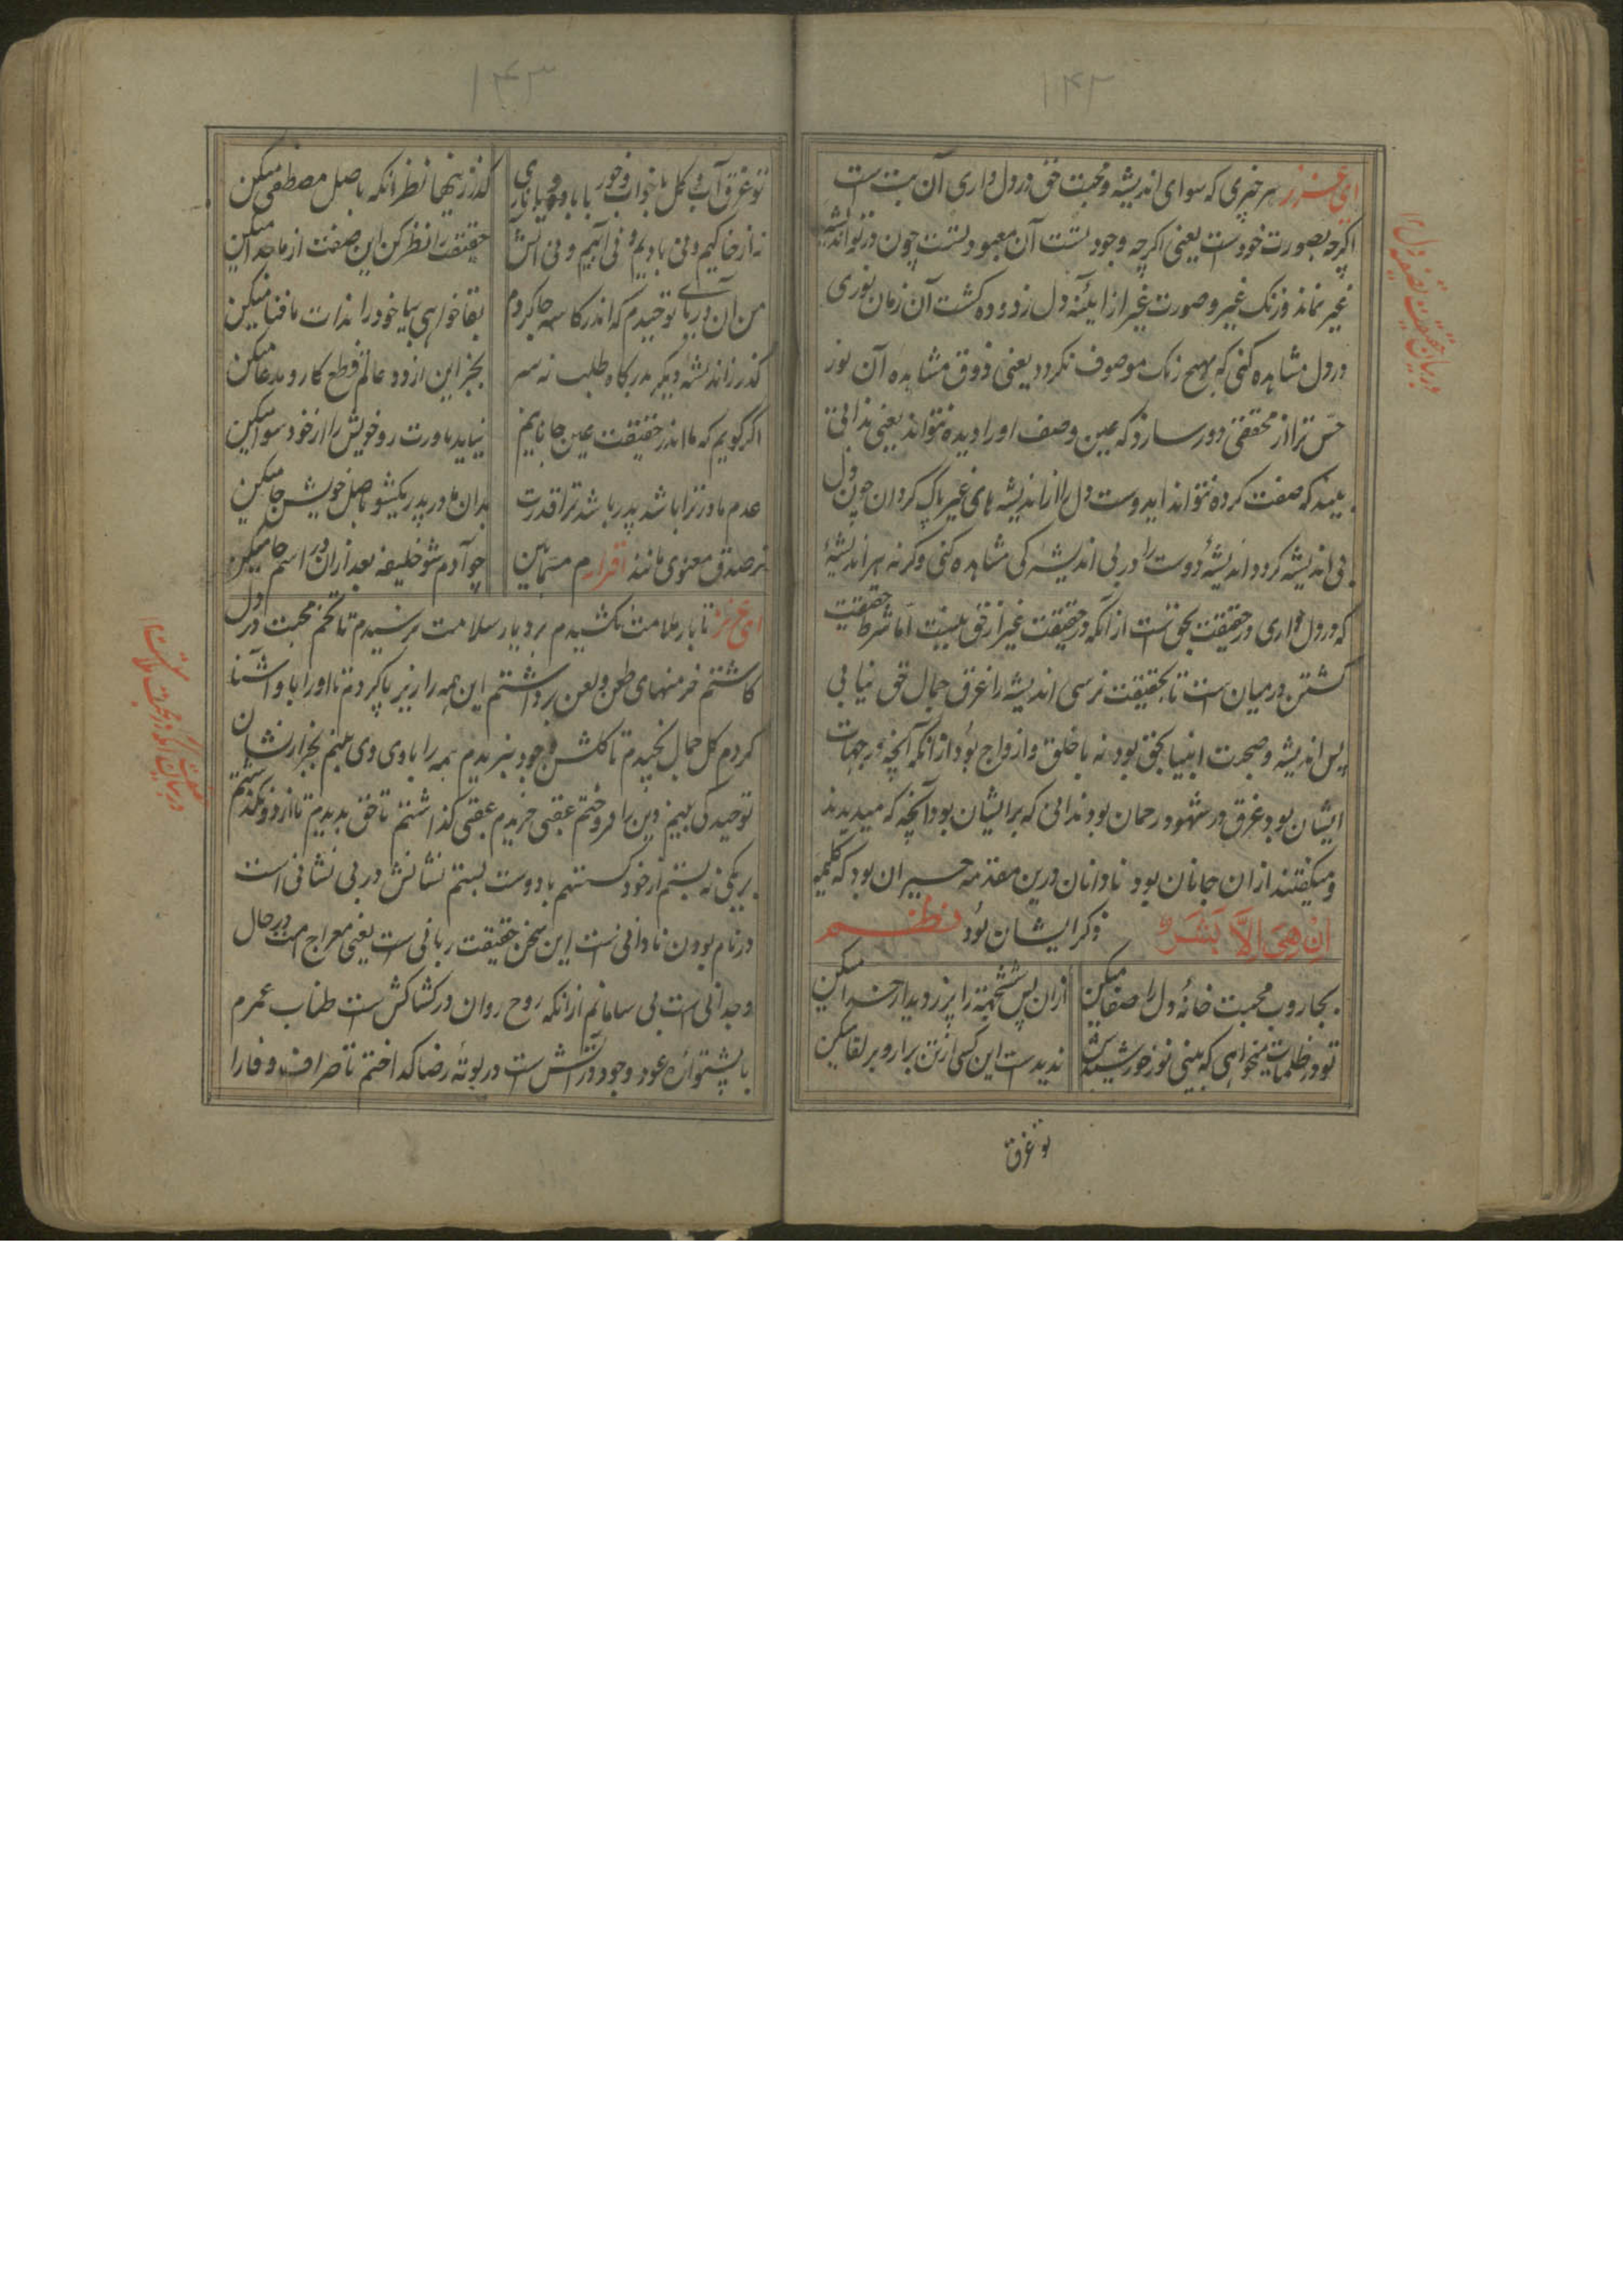 ۱۴۲
ای عزیز هر چیزی که سوای اندیشه و محبت حق در دل داری آن بت است
اگرچه بصورت خودست یعنی اگرچه وجود تست آن معبود تست چون در تو اندیشه
غیر نماند و زنک غیر و صورت غیر از آیئنه دل زدوده کشت آن زمان نوری
در دل مشاهده کنی که بهیچ رنک موصوف نکردد یعنی ذوق مشاهده آن نور
حس ترا از محققی دور سازد که عین وصف او را دیده نتواند یعنی ندانی
بیند که صفت کرده نتواند ایدوست دل را از اندیشه های غیر پاک کردان چون دل
بی اندیشه کردد اندیشهٔ دوست را در بی اندیشه کی مشاهده کنی وکرنه هر اندیشهٔ
که در دل داری در حقیقت بحق تست از آنکه در حقیقت غیر از حق نیست اما شرط حقیقت
کشتن در میان ست تا بحقیقت نرسی اندیشه را غرق جمال حق نیابی
پس اندیشه و صحبت انبیا بحق بود نه با خلق و ازواج بود از انکه آنچه در جهات
ایشان بود غرق در شهود رحمان بود ندانی که بر ایشان بود آنچه که میدیدند
و میکفتند از ان جانان بود نادانان درین مقدمه حیران بود که کلمهٔ
ان هی الا بشر ذکر ایشان بود نظم
بجاروب محبت خانهٔ دل را صفا میکن
ازان پس چشمه را پر ز دیدار خدا میکن
تو در ظلمات میخواهی که بینی نور خورشیدش
ندیدست این کسی از تن برا رو بر لقا میکن
تو غرق
۱۴۳
تو غرق آب و کل با خواب و خور با باد و با ناری
کذر زینها نظر انکه باصل مصطفی میکن
نه از خاکیم و نی بادیم و نی آبیم و نی آتش
حقیقت را نظر کن این صفت از ما جدا میکن
من آن دریای توحیدم که اندر کاسه جا کردم
بقا خواهی بیا خود را بذات ما فنا میکن
کذر ز اندیشه دیکر بدرکاه طلب نه سر
بجز این از دو عالم قطع کار و مدعا میکن
اگر کویم که ما اندر حقیقت عین جانانیم
نیاید باورت رو خویش را از خود سوا میکن
عدم مادر ترا باشد پدر باشد ترا قدرت
بدان مادر پدر یکیشو باصل خویش جا میکن
ز صدق معنوی مانند اقرارم مسما بین
چو آدم شو خلیفه بعد ازان در اسم جا میکن
ای عزیز تا بار ملامت نکشیدم بر دیار سلامت نرسیدم تا تخم محبت در دل
کاشتم خرمنهای طعن و لعن برداشتم این همه را زیر پا کردم تا او را با او آشنا
کردم کل جمال نچیدم تا کلشن وجود نبریدم همه را بادی دی بینم بجز ار نشان
توحید کی بینم دین را فروختم عقبی خریدم عقبی کذاشتم تا حق بدیدم تا از دو نکذشتم
بر یکی نه بستم از خود کسستم با دوست بستم نشانش در بی نشانی است
در نام بودن نادانی است این سخن حقیقت ربانی ست یعنی معراج امت در حال
وجدانی است بی سامانیم از انکه روح روان در کشاکش ست طناب عمرم
با پشتواره عود وجود در آتش ست در بوتهٔ رضا کداختم تا صراف وفا را